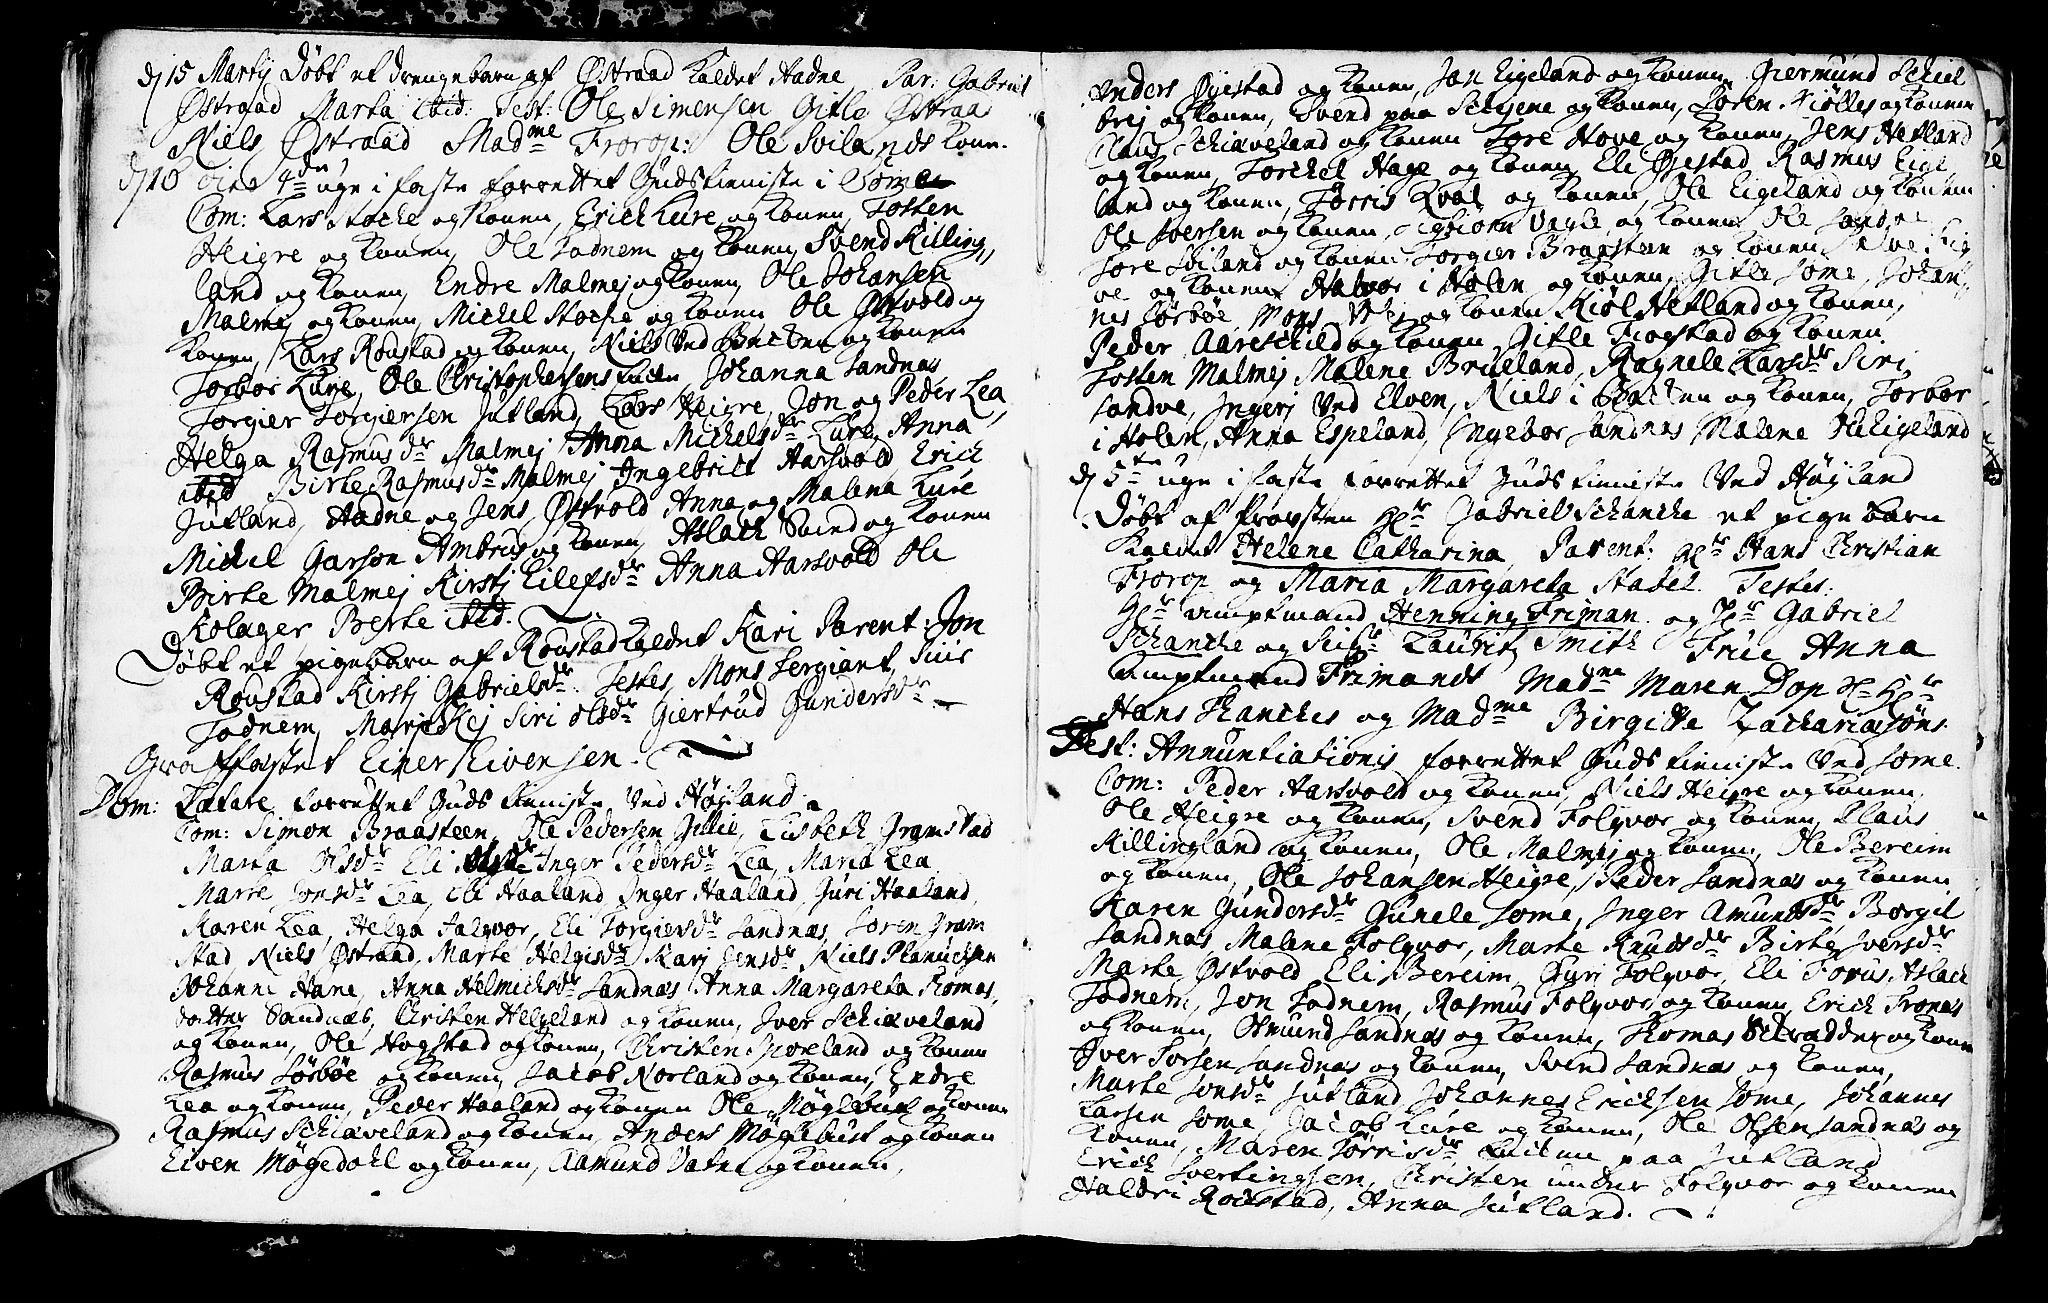 d 15 Martij Döbt et drengebarn af Østraad kaldet Aadne Par: Gabriel
Østraad Marta ibid: Test: Ole Simensen Gitle Østraa
Niels Østraad Madme Frorop: Ole Svilands kone.
d 16 4de uge i faste forrettet Gudstieniste i Some
Com: Lars Stocke og konen, Erich Lure og konen, Tosten
Heigre og konen, Ole Todnem og konen, Svend Killing,,
land og konen, Endre Malmej og konen, Ole Johansen
Malmej og konen, Michel Stocke og konen Ole Østvold og
konen, Lars Roustad og konen, Niels Ved Backen og konen
Torbor Lure, Ole Christophersens Johanna Sandnæs
Torgier Torgiersen Jutland, Lars Heigre, Jon og Peder Lea,
Helga Rasmusdr Malmej Anna Michelsdr Lure, Anna
ibid Birte Rasmusdr Malmej Ingebrict Aarsvold, Erich
Jutland, Aadne og Jens Østvold Anna og Malena Lure
Michel Garson Ambrus og konen Aslach Svind og konen
Birte Malmej Kirstj Eilefsdr Anna Aarsvold Ole
Kolager Berte ibid.
Döbt et pigebarn af Roustad kaldet Kari Parent: Jon
Roustad Kirstj Gabrielsdr. Testes Mons Sergiant, Siur
Todnem, Mari Siri Olsdr Giertrud Gundersdr
Graffæstet Einer Eivensen.
Dom: Lætare forrettet Guds tieniste Ved Højland
Com: Simon Braasteen, Ole Pedersen Gillie, Lisbeth Gramstad
Marta Olsdr Eli Inger Pedersdr Lea, Maria Lea
Marre Jonsdr Lea, Eli Haaland, Inger Haaland, Guri Haaland,
Karen Lea, Helga Falqvor, Eli Torgiersdr Sandnæs, Soren Gram
stad Niels Østraad, Marte Helgisdr Karj Jensdr Niels
Johanne Hane, Anna Helmichsdr Sandnæs Anna Margareta Thomas,
daatter Sandnæs, Christen Helgeland og konen, Iver Schiæveland
og konen, Ole Hogstad og konen, Christen Skoeland og konen
Rasmus Sörböe og konen, Jacob Norland og konen, Endre
Lea og konen, Peder Haaland og konen Ole Möglebust og konen
Rasmus Schiæveland og konen, Anders Möglebust og konen
Eiven Møgedahl og konen, Aamund Vatne og konen,
Anders Øyestad og konen, Jan Eigeland og konen Giermund Schiel
brej og konen, Svend paa Scheyene og konen, Sören Niölles og konen
Claus Schiæveland og konen Tore Hove og konen, Jens Hetland
og konen, Torchel Hage og konen Eli Øyestad Rasmus Eige
land og konen, Torris Qval og konen, Ole Eigeland og konen
Ole Iversen og konen, Sigbiörn Vagle og konen Ole Sandve
Tore Sviland og konen, Torgier Braasteen og konen
ve og konen, Halvor i Holen og konen, Gitle Some, Johan,,
nes Sörböe Mons og konen Kiöl Hetland og konen,
Peder Aareschiold og konen, Gitle Frogstad og konen
Tosten Malmej Malene Brueland, Ragnele Larsdr Siri
Sandve, Ingerj Ved Elven, Niels i Backen og konen, Torbor
i Holen, Anna Espeland, Ingebor Sandnæs Malene Eigeland
d 5te uge i faste forrettet Guds tieniste Ved Højland
Döbt af Provsten Hr Gabriel Schancke et pige barn
kaldet Helene Catharina, Parent: Hr Hans Christian
Frorop og Maria Margareta Stabel. Testes:
Hr amptmand Henning Friman og Hr Gabriel
Schancke og Laurits Smith Frue Anna
amptmand Frimands Madme Maren Dop Hr
Hans Skanckes og Madme Birgitte Zachariasöns
Fest: Annuntiationis forrettet Guds tieniste Ved Some
Com: Peder Aarsvold og konen, Niels Heigre og konen
Ole Heigre og konen, Svend Folqvor og konen, Claus
Killingland og konen, Ole Malmej og konen, Ole Bereim
og konen, Ole Johansen Heigre, Peder Sandnæs og konen
Karen Gundersdr Gunele Some, Inger Amundsdr Borgil
Sandnæs, Malene Folqvor, Marte Knudsdr Birte Iversdr
Marte Østvold Eli Bereim, Guri Folqvor, Eli Forus, Aslach
Todnem, Jon Todnem, Rasmus Folqvor og konen, Erich Tronæs
og konen, Omund Sandnæs og konen, Thomas Schrædder og konen
Iver Torsen Sandnæs og konen, Svend Sandnæs og konen,
Marte Jonsdr Jutland Johannes Erichsen Some, Johannes
Larsen Some, Jacob Lure og konen, Ole Olsen Sandnæs og
konen, Maren Torrisdr paa Jutland
Erich Svertingsen, Christen under Folqvor og konen
Haldri Roustad, Anna Jutland.